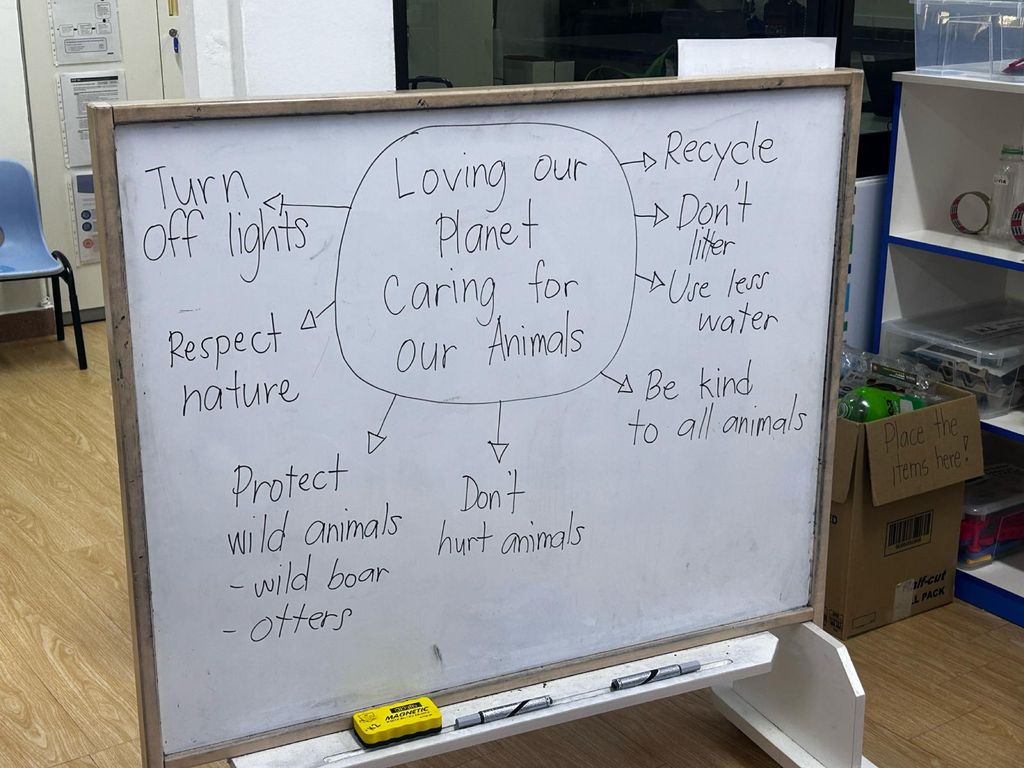 Loving our
Planet
Caring for
our Animals
Turn
Off lights
Respect
nature
Protect
wild animals
- wild boar
- otters
Don't
hurt animals
Recycle
Don't
litter
Use less
water
Be kind
to all animals
Place the
items here!
MAGNETIC